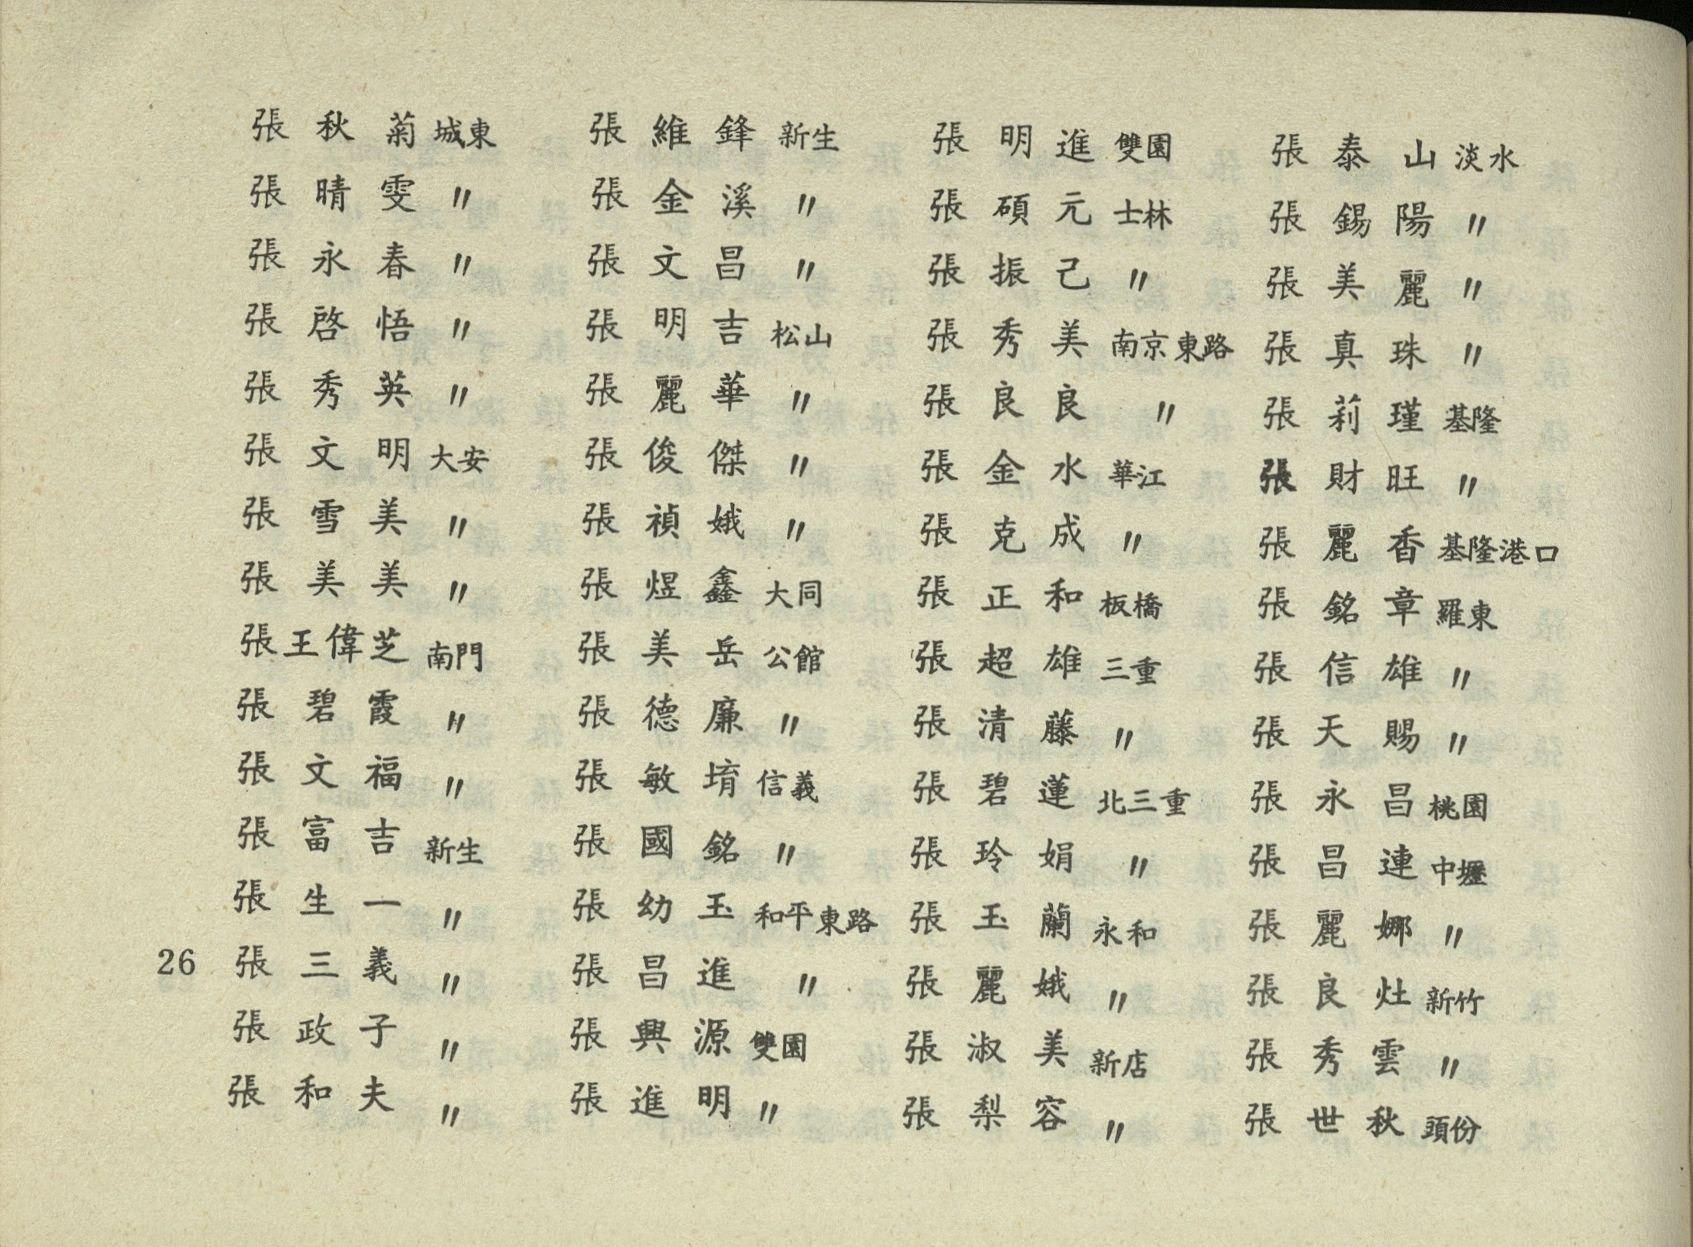 張秋菊 城東
張晴雯 〃
張永春 〃
張啓悟 〃
張秀英 〃
張文明 大安
張雪美 〃
張美美 〃
張王偉芝 南門
張碧霞 〃
張文福 〃
張富吉 新生
張生一 〃
張三義 〃
張政子 〃
張和夫 〃
張維鋒 新生
張金溪 〃
張文昌 〃
張明吉 松山
張麗華 〃
張俊傑 〃
張禎娥 〃
張煜鑫 大同
張美岳 公館
張德廉 〃
張敏堉 信義
張國銘 〃
張幼玉 和平東路
張昌進 〃
張興源 雙園
張進明 〃
張明進 雙園
張碩元 士林
張振己 〃
張秀美 南京東路
張良良 〃
張金水 華江
張克成 〃
張正和 板橋
張超雄 三重
張清藤 〃
張碧蓮 北三重
張玲娟 〃
張玉蘭 永和
張麗娥 〃
張淑美 新店
張梨容 〃
張泰山 淡水
張錫陽 〃
張美麗 〃
張真珠 〃
張莉瑾 基隆
張財旺 〃
張麗香 基隆港口
張銘章 羅東
張信雄 〃
張天賜 〃
張永昌 桃園
張昌連 中壢
張麗娜 〃
張良灶 新竹
張秀雲 〃
張世秋 頭份
26